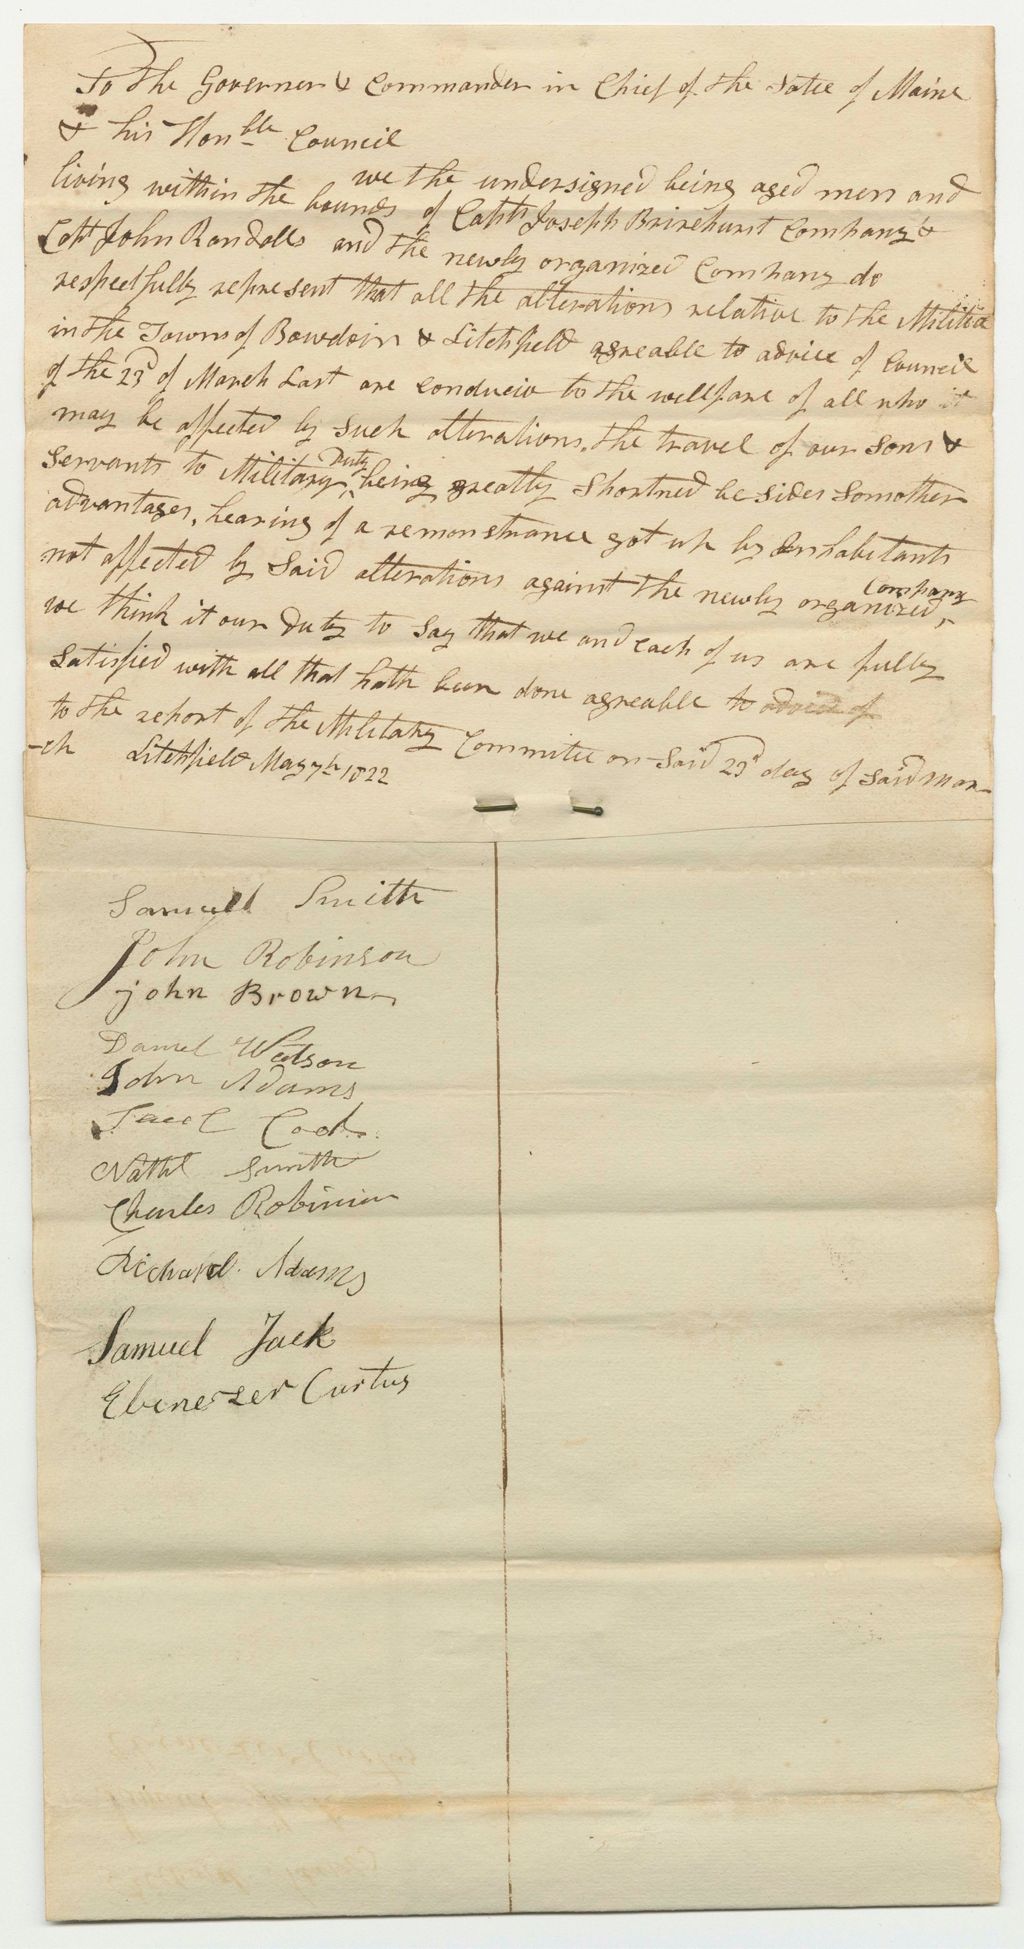 To the Governer & Commander in Chief of the State of Maine
& his Honble Council
we the undersigned being aged men and
living within the bounds of Capt Joseph Brinehurst Company &
Capt John Randalls and the newly organized Company do
respectfully represent that all the alterations relative to the Militia
in the Towns of Bowdoin & Litchfield agreable to advice of Council
of the 23d of March Last are conduciv to the wellfare of all who it
may be affected by Such alterations, the travel of our Sons &
Servants to Military Duty being greatly Shortned besides Somother
advantages, hearing of a remonstrance got up by Inhabitants
not affected by Said alterations against the newly organized Company
we think it our Duty to Say that we and each of us are fully
Satisfied with all that hath been done agreable to advice of
to the report of the Military Committee on Said 23d day of Said Mar-
-ch Litchfield May 7th 1822
Samuell Smith
John Robinson
john Brown
Daniel Watson
John Adams
Nathl Smith
Charles Robinson
Richard Adams
Samuel Jack
Ebenezer Curtus